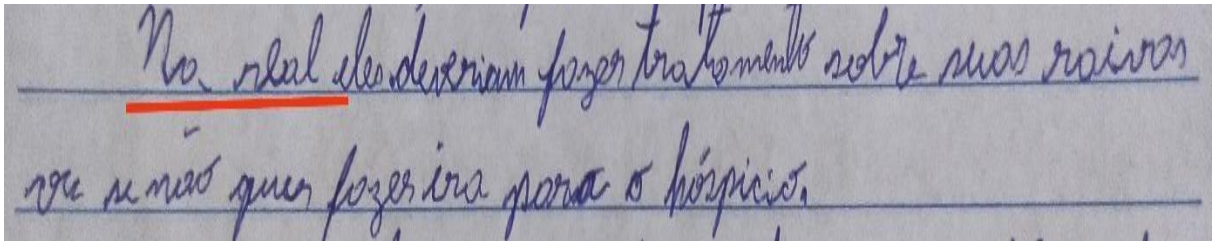 Na real eles deveriam fazer tratamento sobre suas raivas
se não quer fazer ira para o hóspicio.